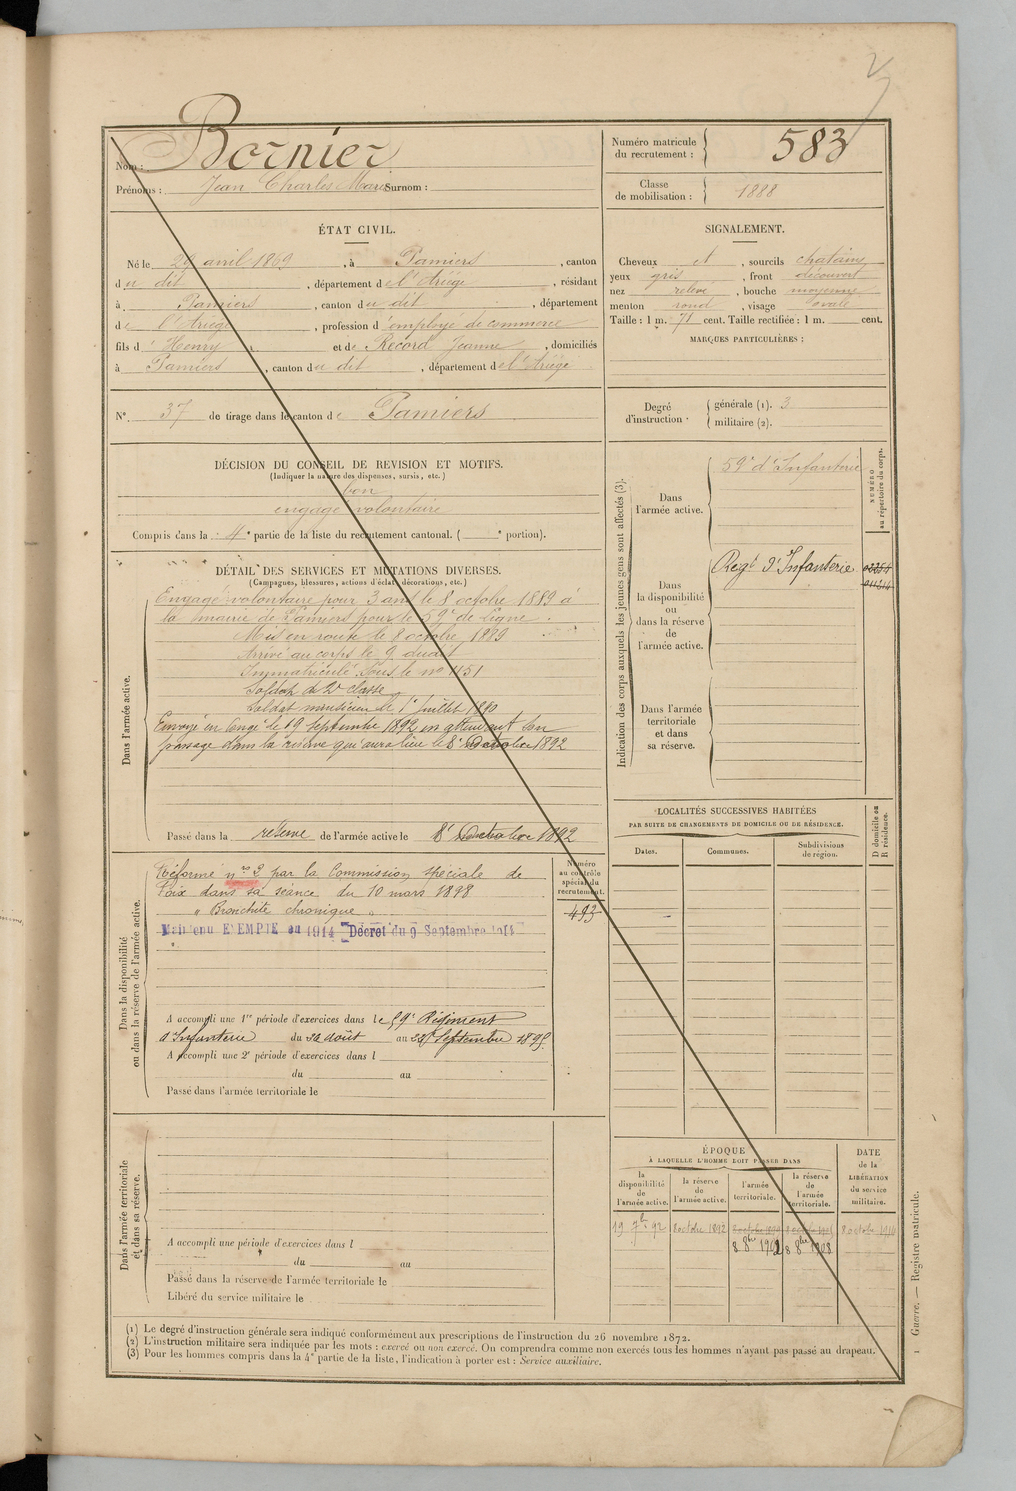 Nom : Bornier
Prénoms : Jean Charles Marie Surnom :
Numéro matricule du recrutement : 583
Classe de mobilisation : 1888
ÉTAT CIVIL.
Né le 29 avril 1869, à Pamiers, canton
du dit, département de l'Ariège, résidant
à Pamiers, canton du dit, département
de l'Ariège, profession d'employé de commerce
fils d'Henry et de Record Jeanne, domiciliés
à Pamiers, canton du dit, département de l'Ariège
SIGNALEMENT.
Cheveux et, sourcils chatains
yeux gris, front découvert
nez relevé, bouche moyenne
menton rond, visage ovale
Taille : 1 m. 71 cent. Taille rectifiée : 1 m. cent.
MARQUES PARTICULIÈRES :
N° 37 de tirage dans le canton de Pamiers
Degré d'instruction
générale (1). 3
militaire (2).
DÉCISION DU CONSEIL DE REVISION ET MOTIFS.
(Indiquer la nature des dispenses, sursis, etc.)
bon
engagé volontaire
Compris dans la 4e partie de la liste du recrutement cantonal. ( e portion).
DÉTAIL DES SERVICES ET MUTATIONS DIVERSES.
(Campagnes, blessures, actions d'éclat, décorations, etc.)
Dans l'armée active.
Engagé volontaire pour 3 ans le 8 octobre 1889 à
la mairie de Pamiers pour le 59e de Ligne.
Mis en route le 8 octobre 1889
Arrivé au corps le 9 dudit
Immatriculé sous le no 1151
Soldat de 2e classe
Soldat musicien le 1er Juillet 1890
Envoyé en congé le 19 Septembre 1892 en attendant son
passage dans la réserve qui aura lieu le 8 Octobre 1892
Passé dans la réserve de l'armée active le 8 Octobre 1892
Indication des corps auxquels les jeunes gens sont affectés (3).
NUMÉRO au répertoire du corps.
Dans l'armée active.
59e d'Infanterie
Dans la disponibilité ou dans la réserve de l'armée active.
Regt d'Infanterie
Dans l'armée territoriale et dans sa réserve.
LOCALITÉS SUCCESSIVES HABITÉES
PAR SUITE DE CHANGEMENTS DE DOMICILE OU DE RÉSIDENCE.
Dates.
Communes.
Subdivisions de région.
D domicile ou R résidence.
Dans la disponibilité ou dans la réserve de l'armée active.
Réformé no 2 par la Commission spéciale de
Foix dans sa séance du 10 mars 1898
" Bronchite chronique "
Maintenu EXEMPTE en 1914 Décret du 9 Septembre 1914
Numéro au contrôle spécial du recrutement.
493
A accompli une 1re période d'exercices dans le 59e Régiment
d'Infanterie du août au Septembre 1895
A accompli une 2e période d'exercices dans l
du au
Passé dans l'armée territoriale le
Dans l'armée territoriale et dans sa réserve.
A accompli une période d'exercices dans l
du au
Passé dans la réserve de l'armée territoriale le
Libéré du service militaire le
ÉPOQUE
À LAQUELLE L'HOMME DOIT PASSER DANS
la disponibilité de l'armée active.
la réserve de l'armée active.
l'armée territoriale.
la réserve de l'armée territoriale.
DATE de la LIBÉRATION du service militaire.
19 7bre 92
8 octobre 1892
8 8bre 1902
8 8bre 1908
8 octobre
(1) Le degré d'instruction générale sera indiqué conformément aux prescriptions de l'instruction du 26 novembre 1872.
(2) L'instruction militaire sera indiquée par les mots : exercé ou non exercé. On comprendra comme non exercés tous les hommes n'ayant pas passé au drapeau.
(3) Pour les hommes compris dans la 4e partie de la liste, l'indication à porter est : Service auxiliaire.
1 Guerre. — Registre matricule.